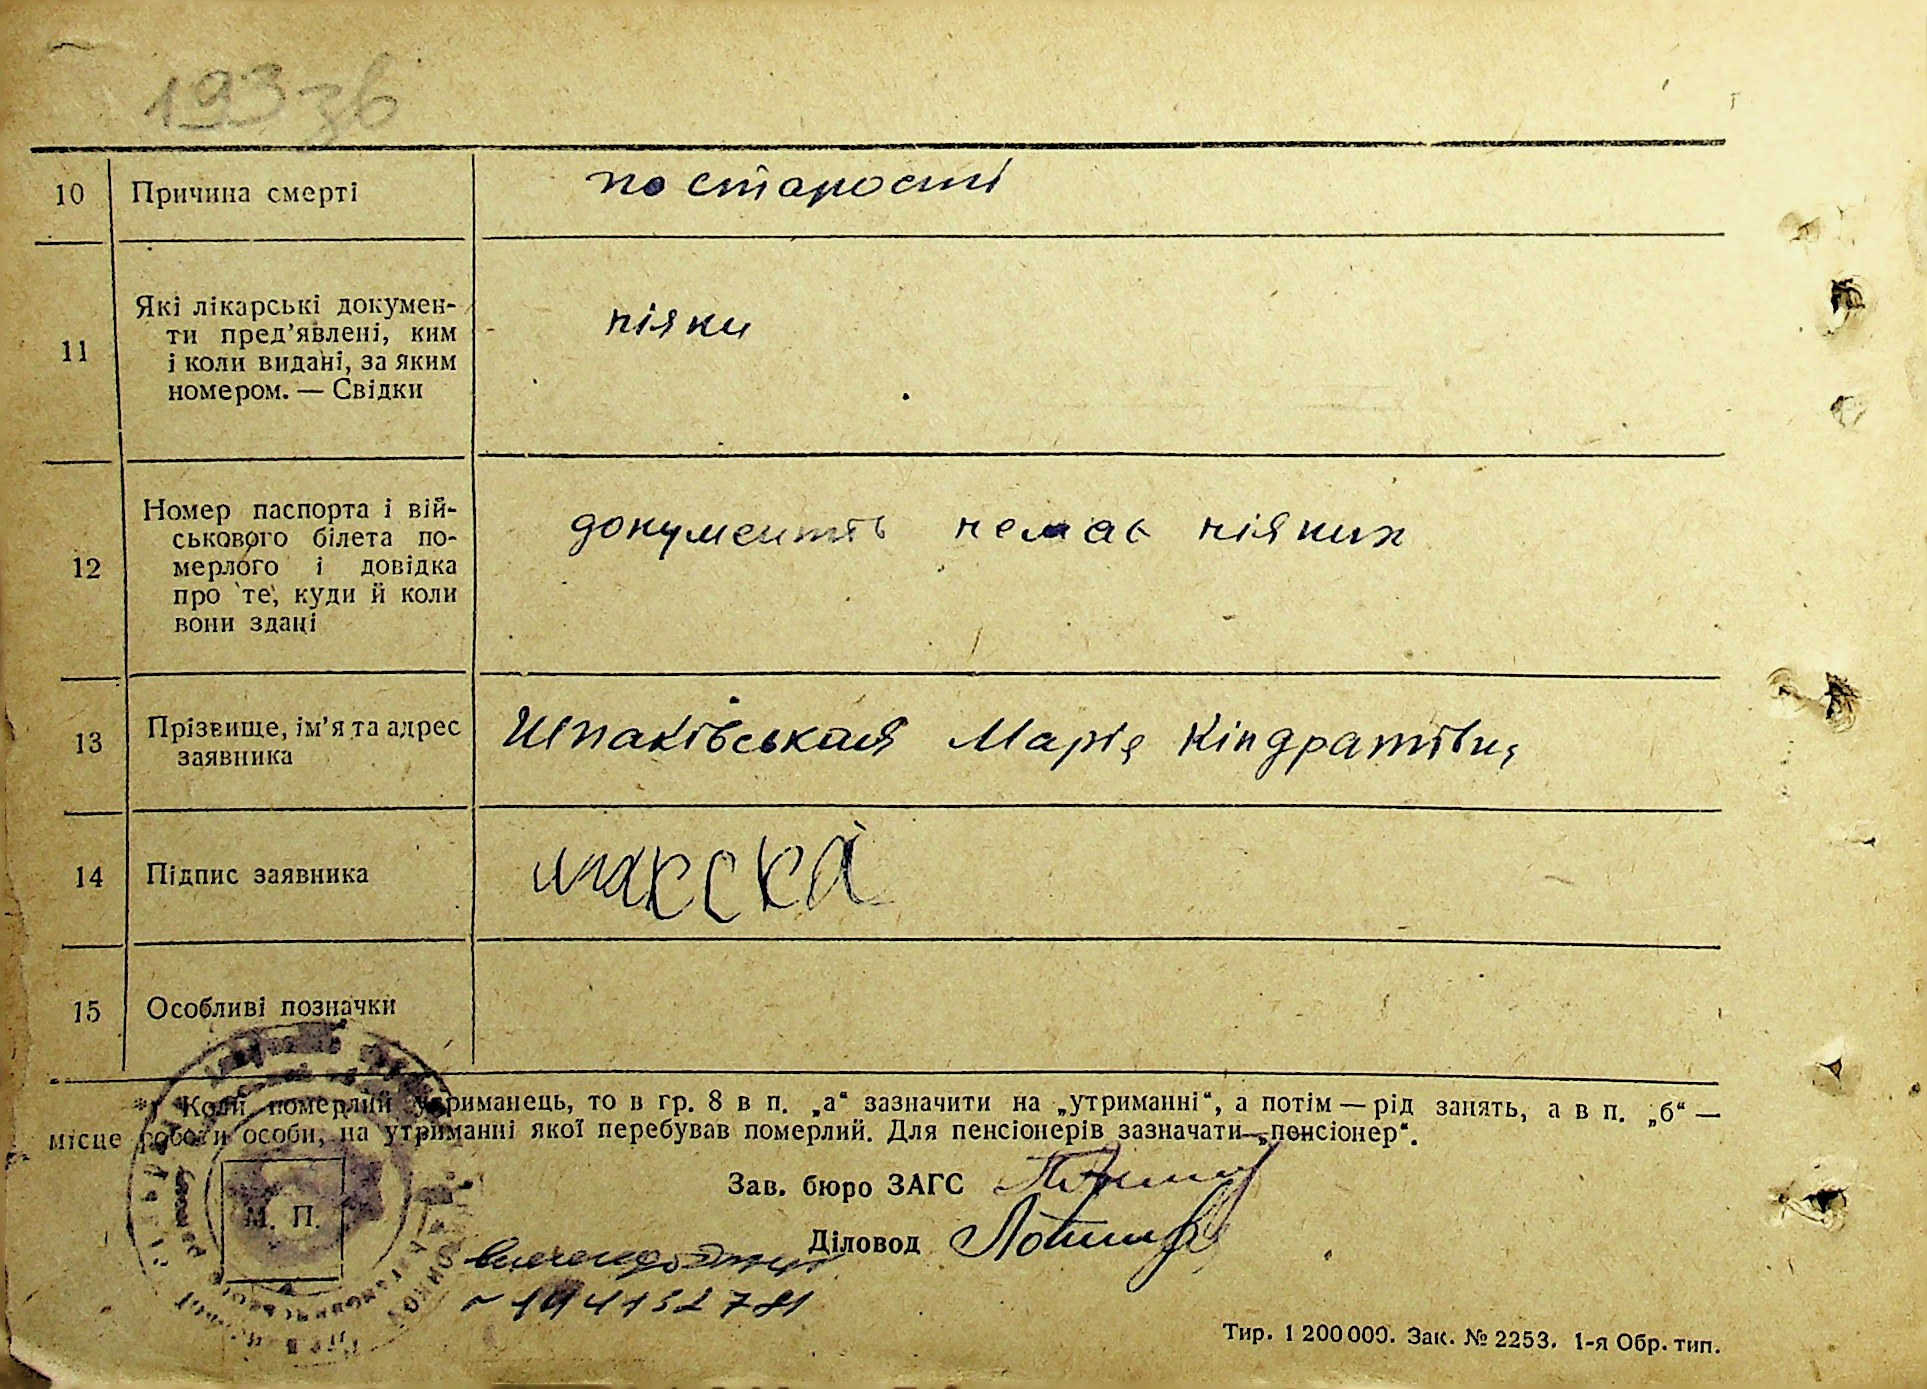 193 зв
10 Причина смерті по старості
11 Які лікарські докумен-
ти пред'явлені, ким
і коли видані, за яким
номером. — Свідки
ніяки
12 Номер паспорта і вій-
ськового білета по-
мерлого і довідка
про те, куди й коли
вони здані
документів немає ніяких
13 Прізвище, ім'я та адрес
заявника
Шпаківськая Марія Кіндратівна
14 Підпис заявника
15 Особливі позначки
*) Коли померлий утриманець, то в гр. 8 в п. „а“ зазначити на „утриманні“, а потім — рід занять, а в п. „б“ —
місце роботи особи, на утриманні якої перебував померлий. Для пенсіонерів зазначати „пенсіонер“.
Зав. бюро ЗАГС
М. П.
Діловод
Тир. 1 200 000. Зак. № 2253. 1-я Обр. тип.